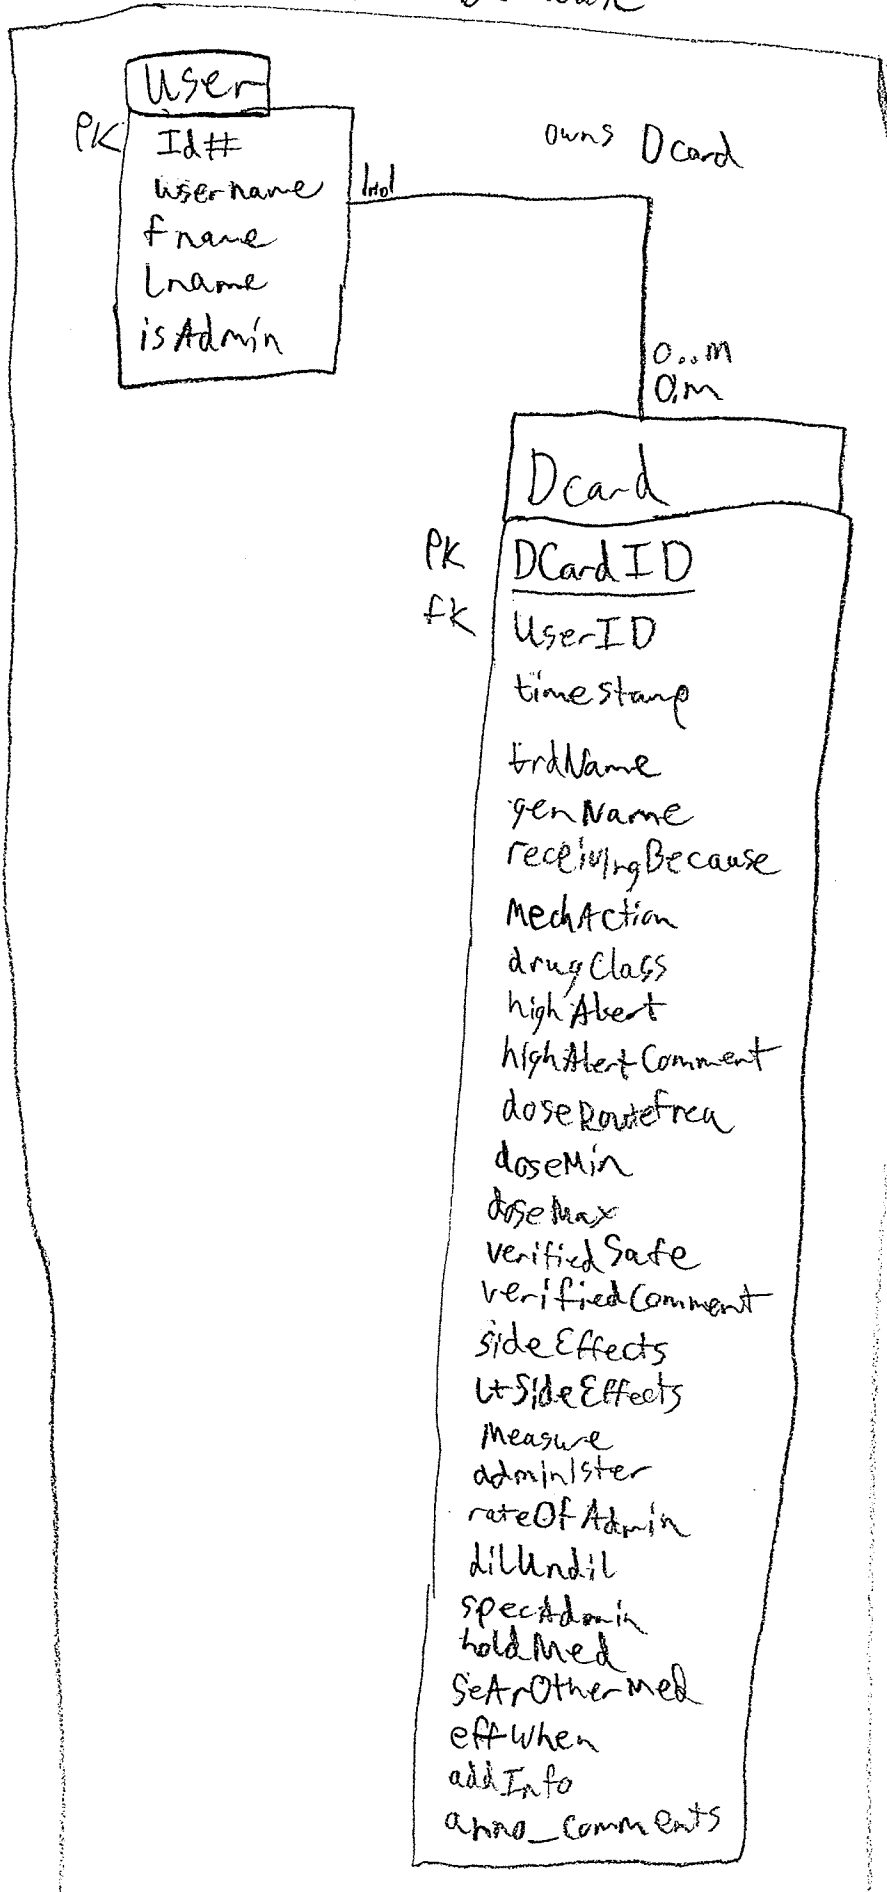 User
PK Id#
username
fname
Lname
isAdmin
owns Dcard
0..M
0.M
Dcard
PK DCardID
fK UserID
timestamp
trdName
genName
receivingBecause
MechAction
drugClass
highAlert
highAlertComment
doseRouteFreq
doseMin
doseMax
verifiedSafe
verifiedComment
sideEffects
LtSideEffects
Measure
administer
rateOfAdmin
dilUndil
specAdmin
holdMed
SeArOtherMed
effWhen
addInfo
anno_comments